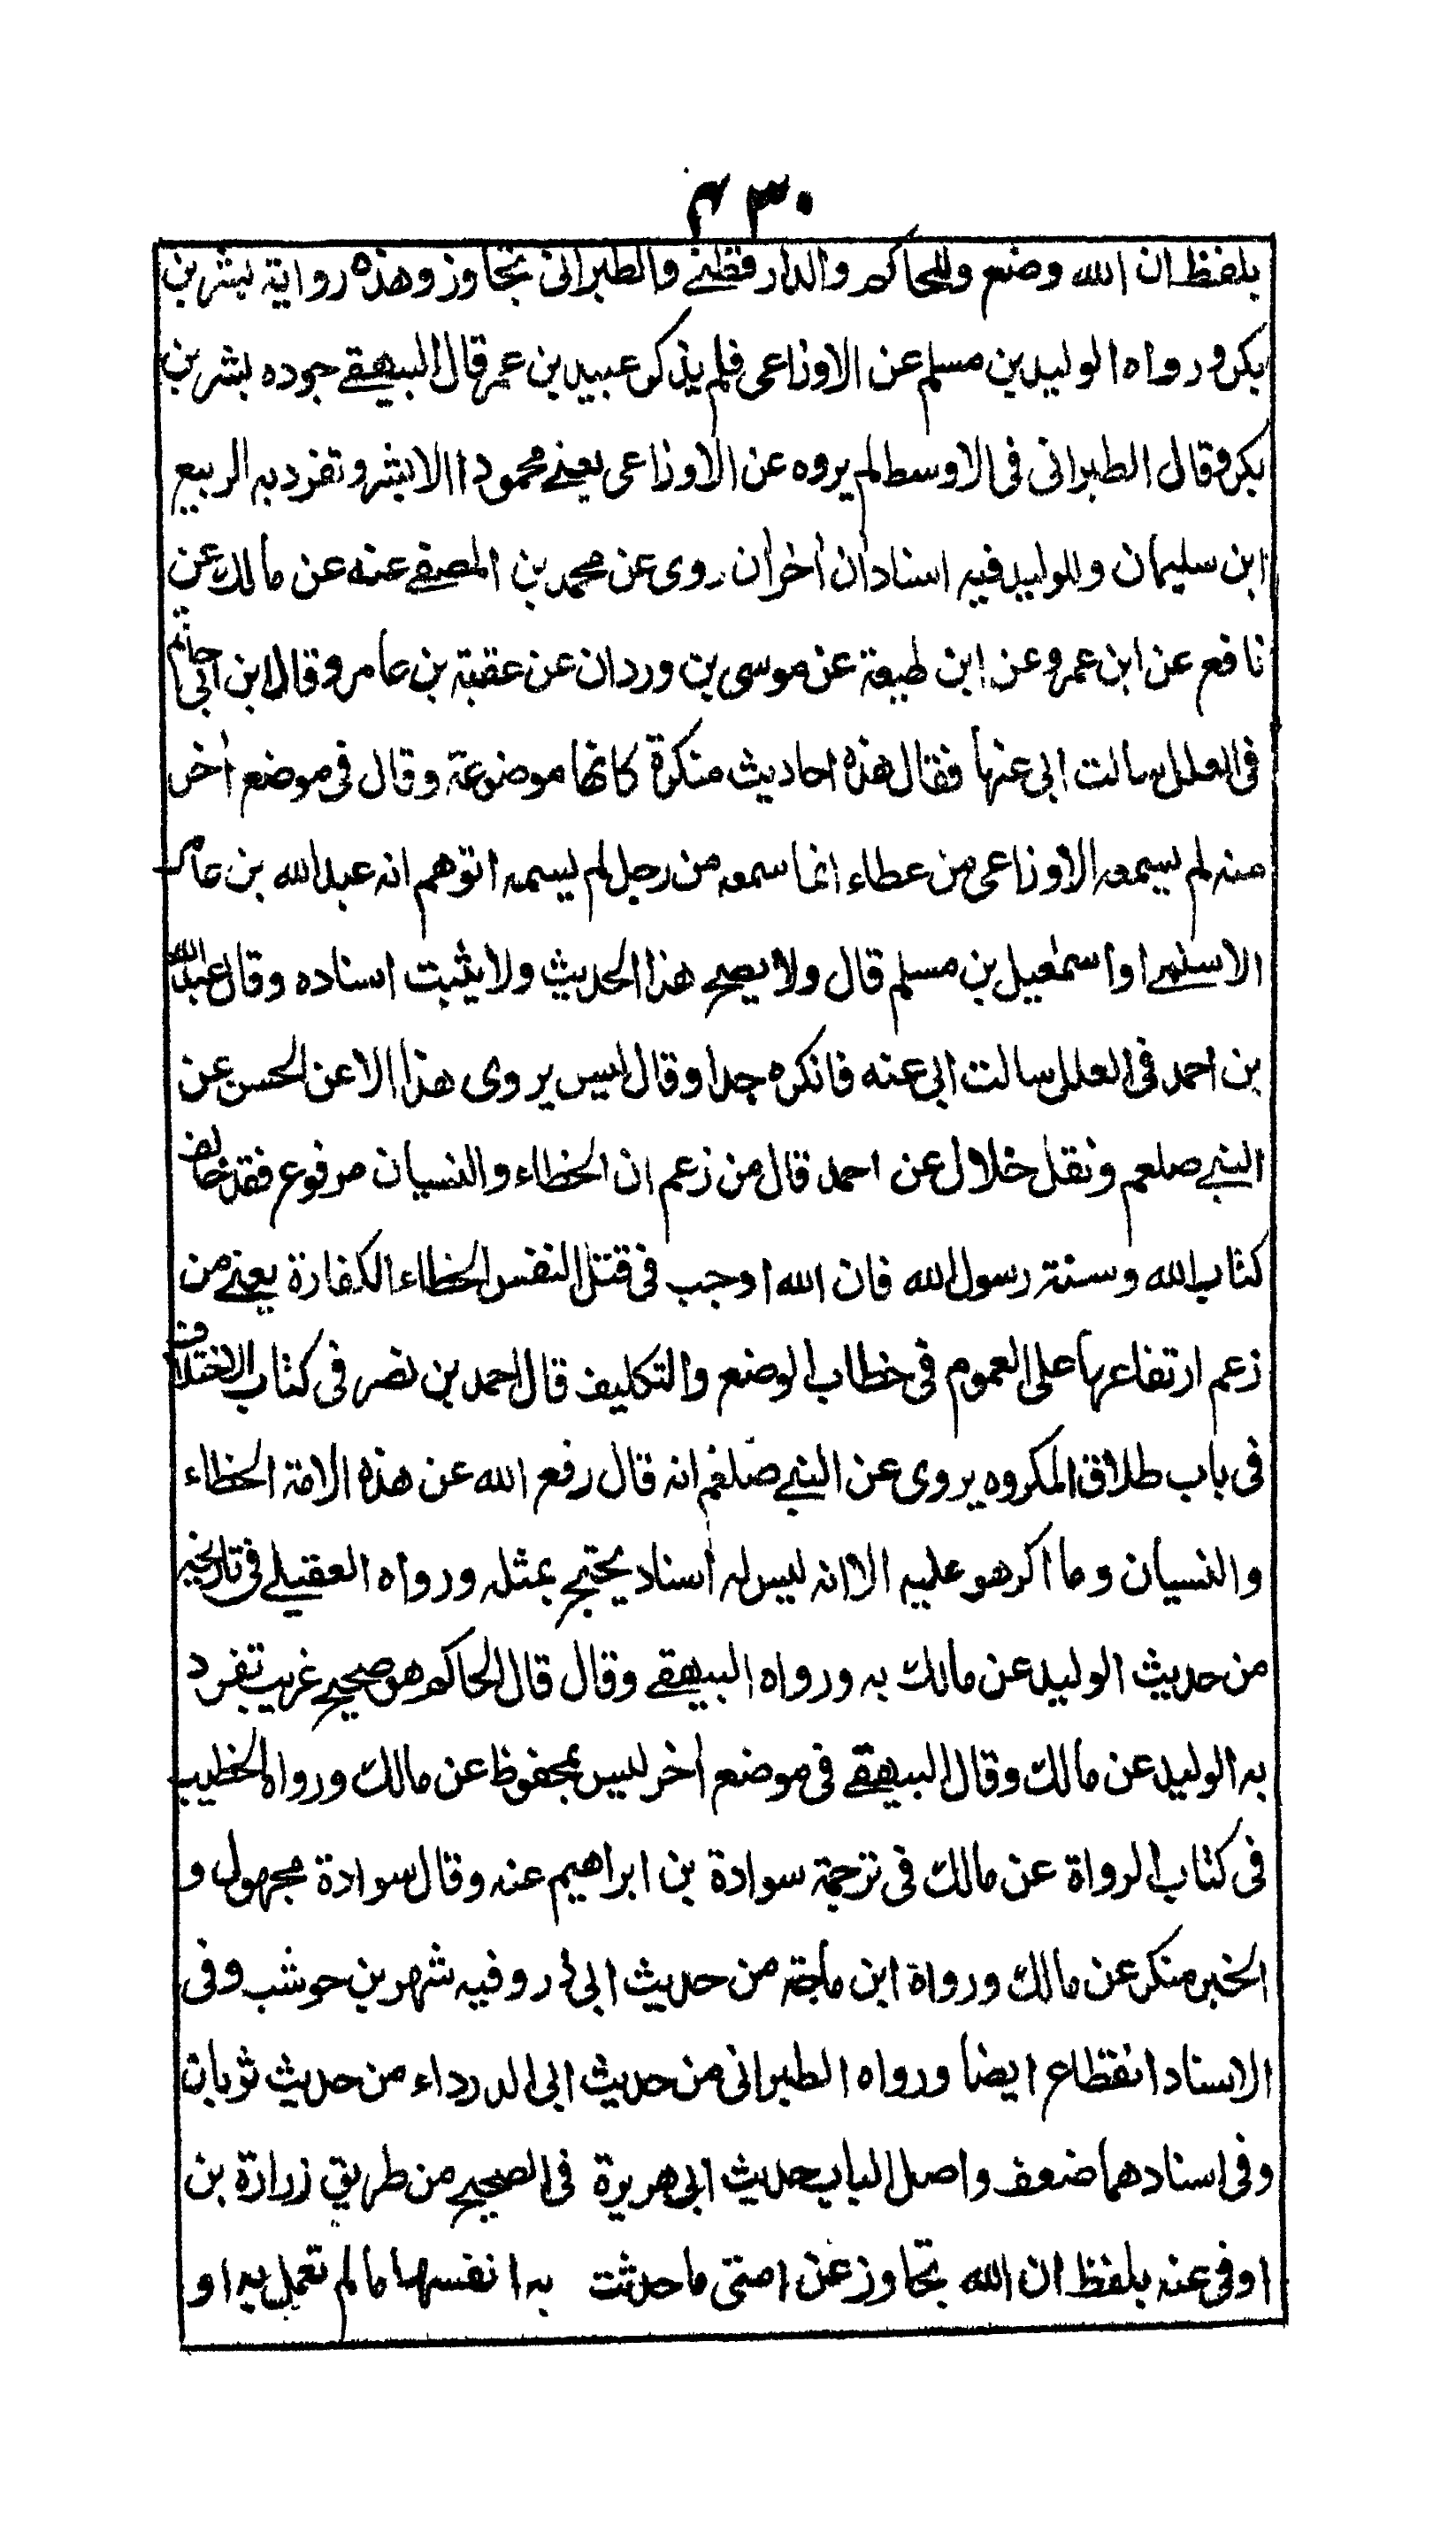 ۴۳۰
بلفظ ان الله وضع وللحاكم والدارقطنے والطبرانى تجاوز وهذه رواية بشر بن
بكر ورواه الوليد بن مسلم عن الاوزاعى فلم يذكر عبيد بن عمر قال البيهقے جوده بشر بن
بكر وقال الطبرانى فى الاوسط لم يروه عن الاوزاعى يعنے محمودا الا بشر وتفرد به الربيع
ابن سليمان وللوليد فيه اسنادان اخران روى عن محمد بن المصفے عنه عن مالك عن
نافع عن ابن عمر وعن ابن لهيعة عن موسى بن وردان عن عقبة بن عامر وقال ابن ابى حاتم
فى العلل سالت ابى عنها فقال هذه احاديث منكرة كانها موضوعة وقال فى موضع اخر
منه لم يسمعه الاوزاعى من عطاء انما سمعه من رجل لم يسمه اتوهم انه عبد الله بن عامر
الاسلمے او اسمعيل بن مسلم قال ولا يصح هذا الحديث ولا يثبت اسناده وقال عبد الله
بن احمد فى العلل سالت ابى عنه فانكره جدا وقال ليس يروى هذا الا عن الحسن عن
النبے صلعم ونقل خلال عن احمد قال من زعم ان الخطاء والنسيان مرفوع فقد خالف
كتاب الله وسنة رسول الله فان الله اوجب فى قتل النفس الخطاء الكفارة يعنے من
زعم ارتفاعها على العموم فى خطاب الوضع والتكليف قال احمد بن نصر فى كتاب الاختلاف
فى باب طلاق المكروه يروى عن النبے صلعم انه قال رفع الله عن هذه الامة الخطاء
والنسيان وما اكرهو عليه الا انه ليس له اسناد يحتج بمثله ورواه العقيلے فى تاريخه
من حديث الوليد عن مالك به ورواه البيهقے وقال قال الحاكم هو صحيح غريب تفرد
به الوليد عن مالك وقال البيهقے فى موضع اخر ليس بمحفوظ عن مالك ورواه الخطيب
فى كتاب الرواة عن مالك فى ترجمة سوادة بن ابراهيم عنه وقال سوادة مجهول و
الخبر منكر عن مالك ورواة ابن ماجة من حديث ابى ذر وفيه شهر بن حوشب وفى
الاسناد انقطاع ايضا ورواه الطبرانى من حديث ابى الدرداء من حديث ثوبان
وفى اسنادهما ضعف واصل الباب حديث ابى هريرة فى الصحيح من طريق زرارة بن
اوفى عنه بلفظ ان الله تجاوز عن امتى ما حدثت به انفسها ما لم تعمل به او